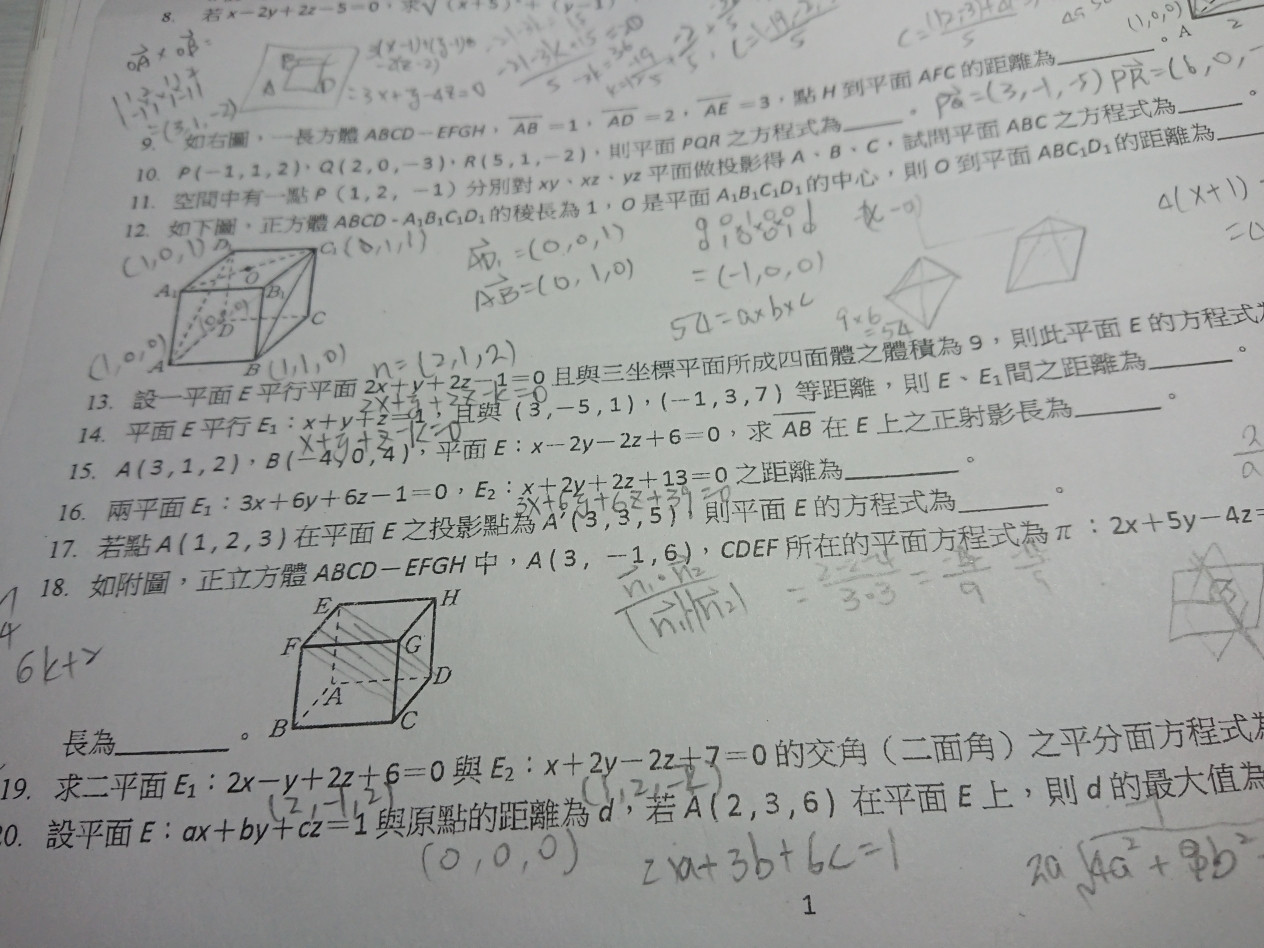 8. 若 x−2y+2z−5=0，求√(x+5)
9. 如右圖，一長方體 ABCD−EFGH，AB=1，AD=2，AE=3，點 H 到平面 AFC 的距離為______。
10. P(−1,1,2)，Q(2,0,−3)，R(5,1,−2)，則平面 PQR 之方程式為______。
PQ=(3,-1,-5) PR=(6,0,-
11. 空間中有一點 P (1, 2, −1) 分別對 xy、xz、yz 平面做投影得 A、B、C，試問平面 ABC 之方程式為______。
12. 如下圖，正方體 ABCD - A₁B₁C₁D₁的稜長為 1，O 是平面 A₁B₁C₁D₁的中心，則 O 到平面 ABC₁D₁的距離為______
(1,0,1) D₁ C₁ (0,1,1)
A₁ O B₁
D C
(1,0,0) A B (1,1,0)
AD₁=(0,0,1)
AB=(0,1,0)
=(-1,0,0)
54=a×b×c
9×6
=54
4(x+1)
n=(2,1,2)
13. 設一平面 E 平行平面 2x+y+2z−1=0 且與三坐標平面所成四面體之體積為 9，則此平面 E 的方程式為
2x+y+2z-k=0
14. 平面 E 平行 E₁：x+y+z=1，且與 (3,−5,1)，(−1,3,7) 等距離，則 E、E₁間之距離為______。
x+y+z-k=0
15. A(3,1,2)，B(−4,0,4)，平面 E：x−2y−2z+6=0，求 AB 在 E 上之正射影長為______。
16. 兩平面 E₁：3x+6y+6z−1=0，E₂：x+2y+2z+13=0 之距離為______。
3x+6y+6z+39=0
17. 若點 A(1,2,3) 在平面 E 之投影點為 A'(3,3,5)，則平面 E 的方程式為______。
18. 如附圖，正立方體 ABCD−EFGH 中，A(3, −1,6)，CDEF 所在的平面方程式為 π：2x+5y−4z=
E H
F G
A D
B C
6k+2
長為______。
19. 求二平面 E₁：2x−y+2z+6=0 與 E₂：x+2y−2z+7=0 的交角（二面角）之平分面方程式為
(2,-1,2) (1,2,-2)
20. 設平面 E：ax+by+cz=1 與原點的距離為 d，若 A(2,3,6) 在平面 E 上，則 d 的最大值為
(0,0,0) 2a+3b+6c=1
1